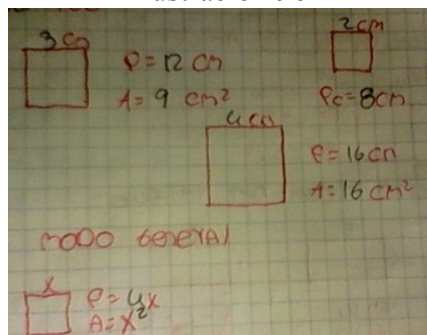 3 cm
P = 12 cm
A = 9 cm²
2 cm
Pc = 8cm
4 cm
P = 16 cm
A = 16 cm²
modo general
x
P = 4x
A = x²